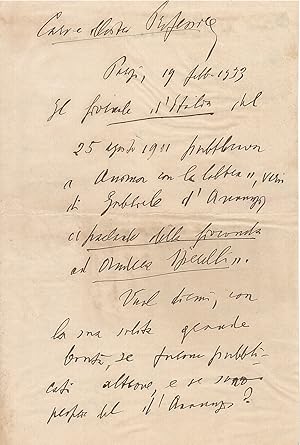 Caro e illustre Professore,
Parigi, 19 febb. 1933
Il Giornale d'Italia del
25 agosto 1911 pubblicava
"Anomor con la", versi
di Gabriele d'Annunzio,
parlando della Gioconda
ad Andrea
Vuol dirmi, con
la sua solita grande
bontà, se furono pubbli-
cati altrove, e se sono
proprio del d'Annunzio?